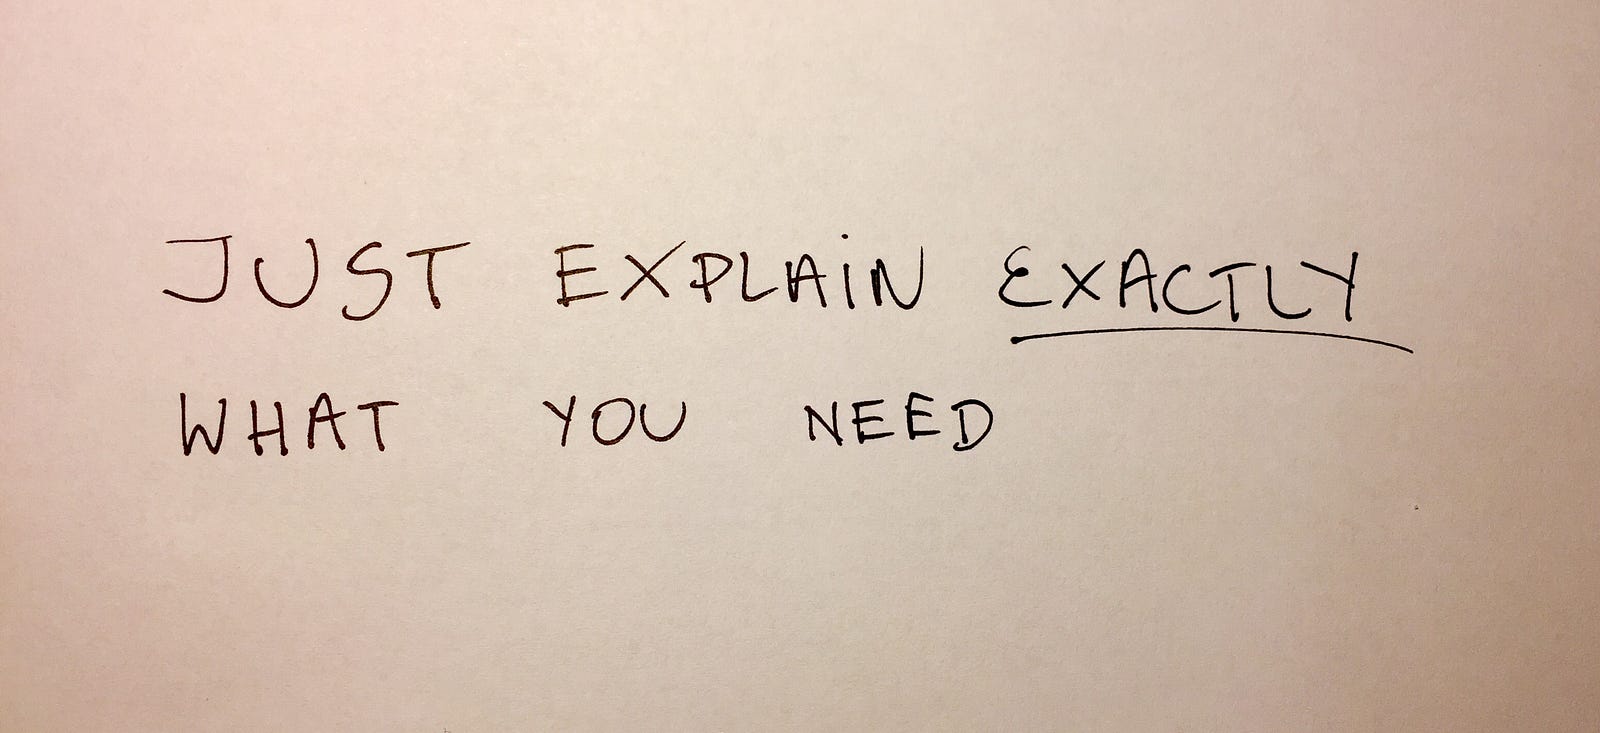 JUST EXPLAIN EXACTLY
WHAT YOU NEED